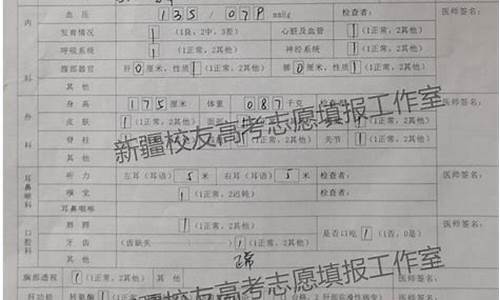 内 血压 135 / 079 mmHg 检查者: 医师签名:
发育情况 1 (1良, 2中, 3差) 心脏及血管 1 (1正常, 2其他)
呼吸系统 1 (1正常, 2其他) 神经系统 1 (1正常, 2其他)
科 腹部器官 肝 0 厘米, 性质 1 (1正常, 2其他) 脾 0 厘米, 性质 1 (1正常, 2其他)
其他
外 身高 175 厘米 体重 087 千克 医师签名:
皮肤 1 (1正常, 2其他) 面部
新疆校友高考志愿填报工作室
科 脊柱 关节 1 (1正常, 2其他)
其他
耳鼻喉科 听力 左耳(耳语) 5 米 右耳(耳语) 5 米 检查者: 医师签名:
嗅觉 1 (1正常, 2迟钝) 检查者:
耳鼻咽喉
口腔科 唇腭 1 (1正常, 2其他) 是否口吃 1 (1否, 0是) 医师签名:
牙齿 (齿缺失 1 (1正常, 2其他)
其他 正常
新疆校友高考志愿填报工作室
胸部透视 1 (1正常, 2其他) 其他 医师签名:
肝功能 转氨酶